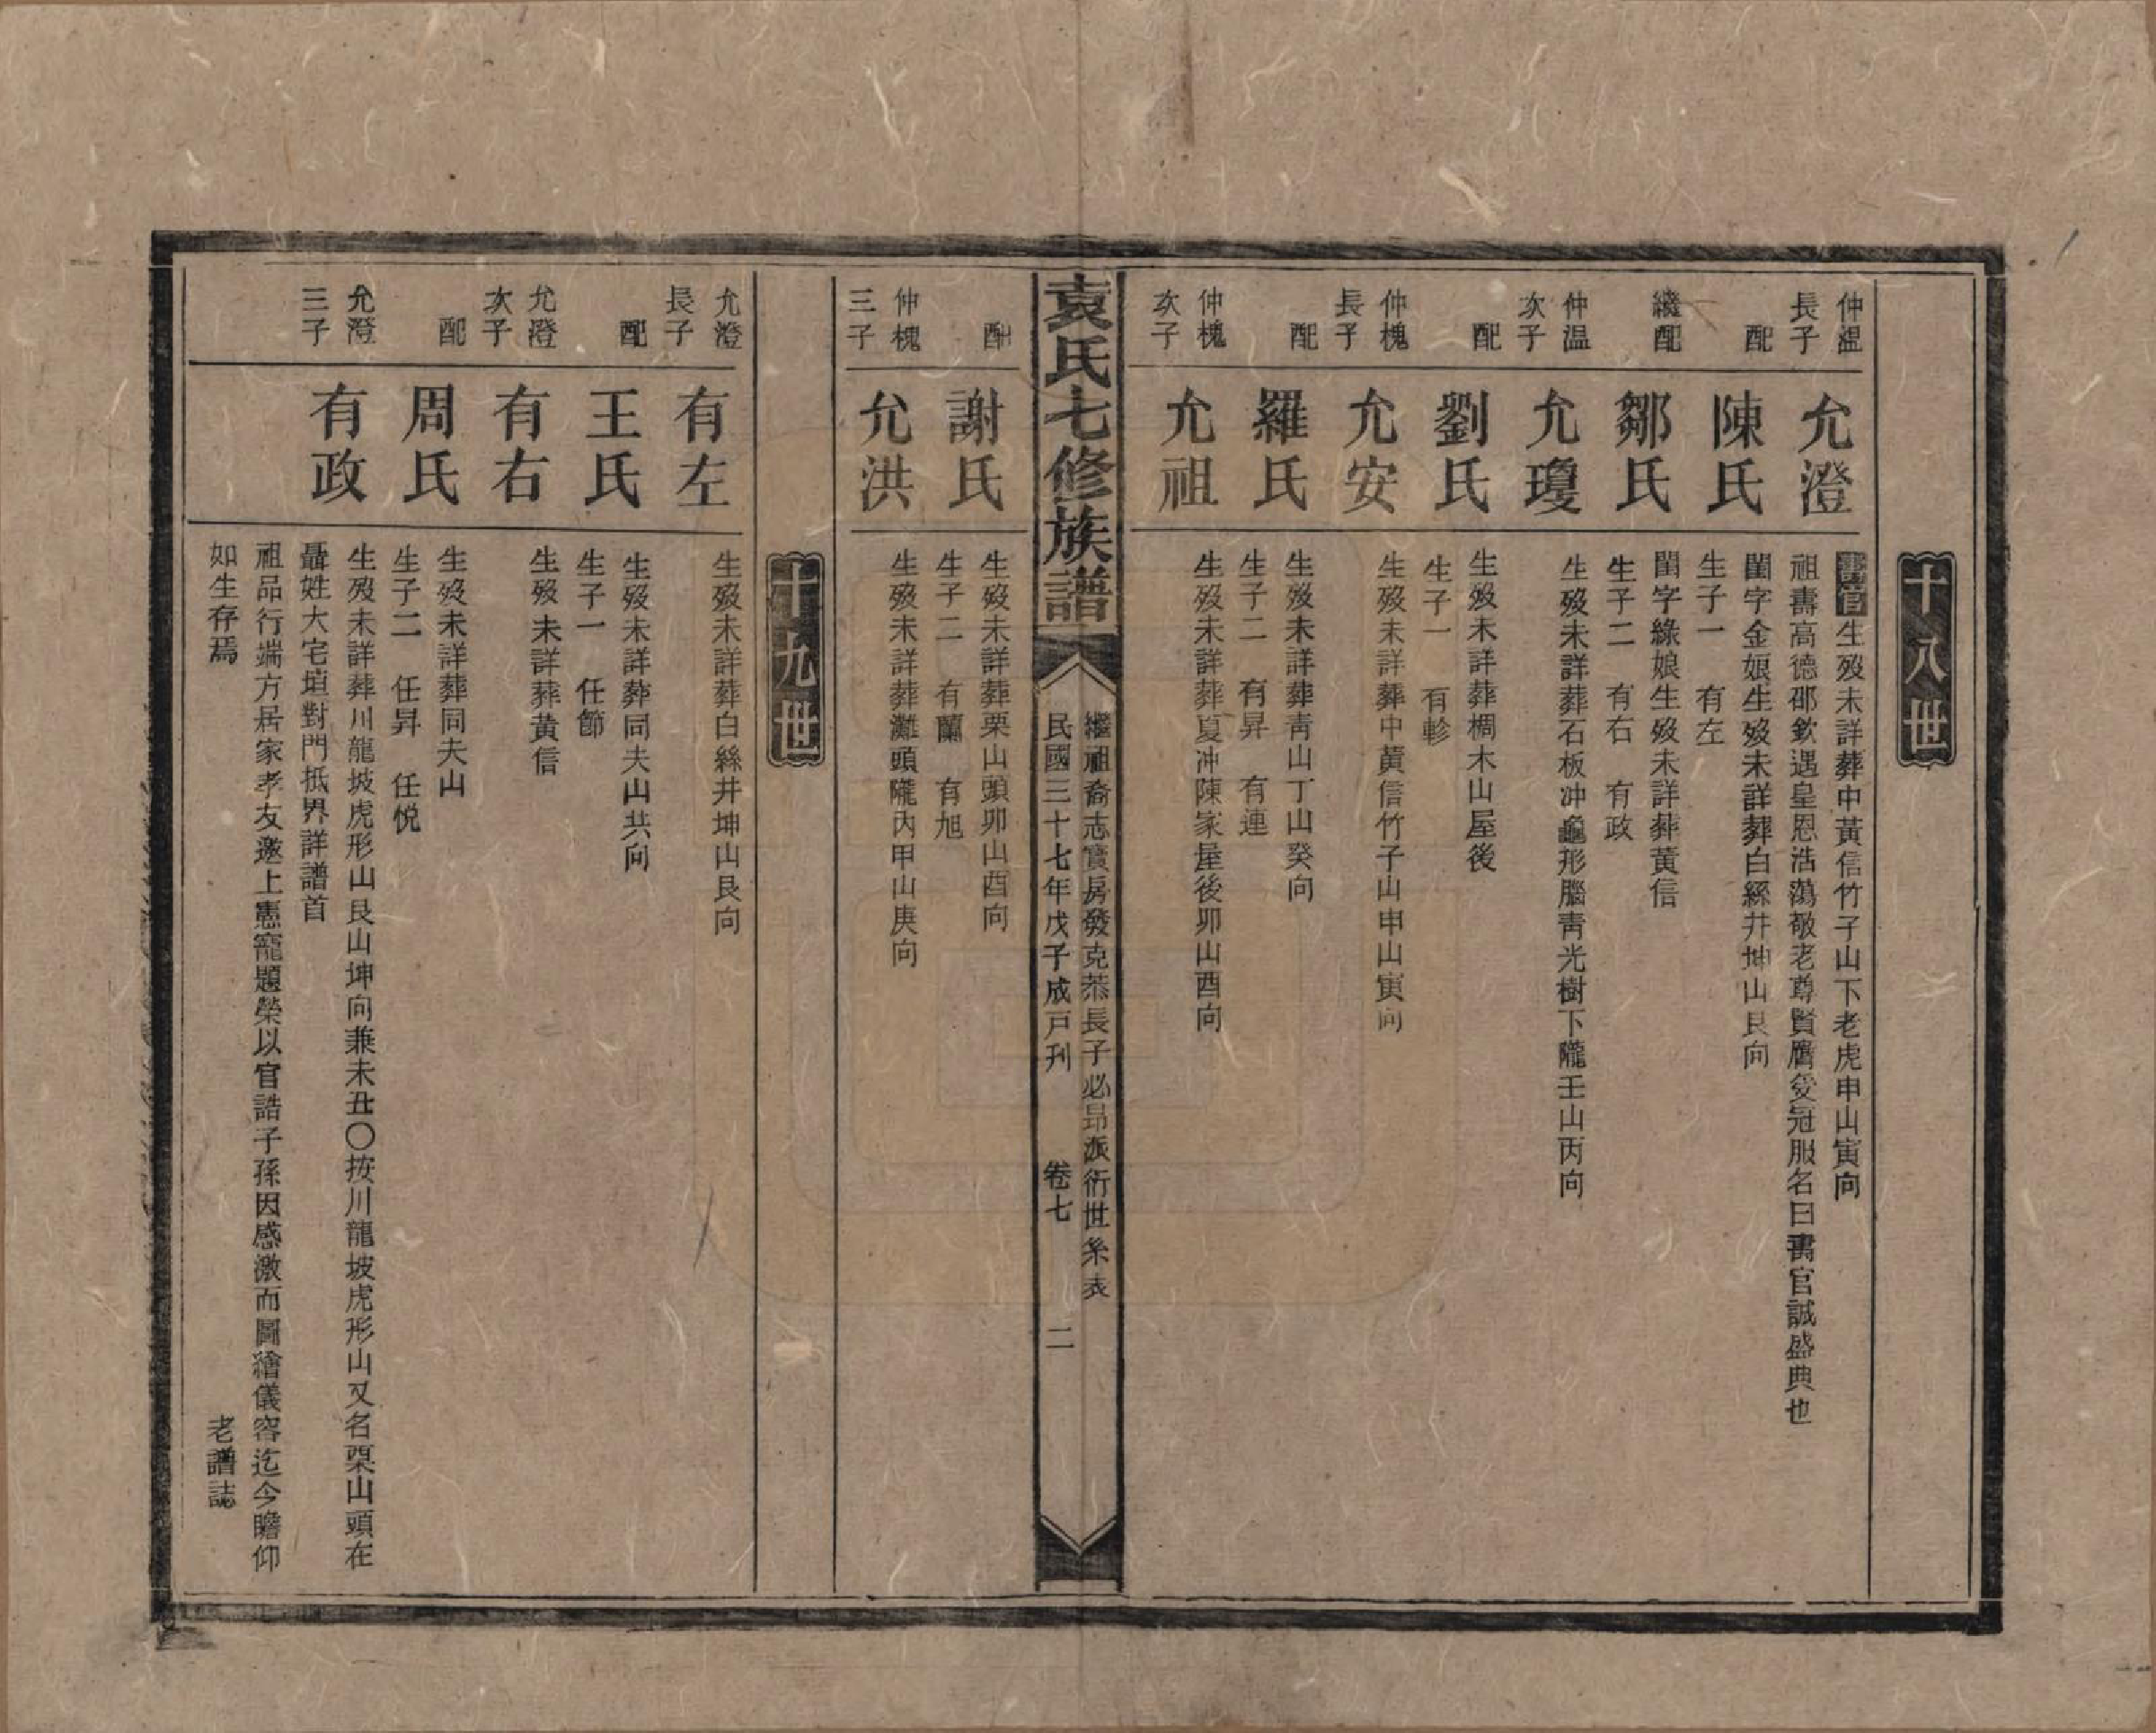 十八世
仲温長子
允澄
壽官生歿未詳葬中黃信竹子山下老虎申山寅向
祖壽高德邵欽遇皇恩浩蕩敬老尊賢膺受冠服名曰壽官誠盛典也
配
陳氏
閨字金娘生歿未詳葬白絲井坤山艮向
生子一 有左
繼配
鄒氏
閨字綠娘生歿未詳葬黃信
生子二 有右 有政
仲温次子
允瓊
生歿未詳葬石板冲龜形腦青光樹下隴壬山丙向
配
劉氏
生歿未詳葬椆木山屋後
生子一 有軫
仲槐長子
允安
生歿未詳葬中黃信竹子山申山寅向
配
羅氏
生歿未詳葬青山丁山癸向
生子二 有昇 有連
仲槐次子
允祖
生歿未詳葬夏冲陳家屋後卯山酉向
袁氏七修族譜
繼祖裔志實房發克恭長子必昂派衍世系表
民國三十七年戊子成戸刋 卷七 二
配
謝氏
生歿未詳葬栗山頭卯山酉向
生子二 有蘭 有旭
仲槐三子
允洪
生歿未詳葬灘頭隴內甲山庚向
十九世
允澄長子
有左
生歿未詳葬白絲井坤山艮向
配
王氏
生歿未詳葬同夫山共向
生子一 任節
允澄次子
有右
生歿未詳葬黃信
配
周氏
生歿未詳葬同夫山
生子二 任昇 任悅
允澄三子
有政
生歿未詳葬川龍坡虎形山艮山坤向兼未丑〇按川龍坡虎形山又名栗山頭在
聶姓大宅垣對門抵界詳譜首
祖品行端方居家孝友邀上憲寵題榮以官誥子孫因感激而圖繪儀容迄今瞻仰
如生存焉 老譜誌